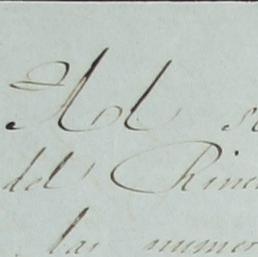 Al s
del Rinc
las numer